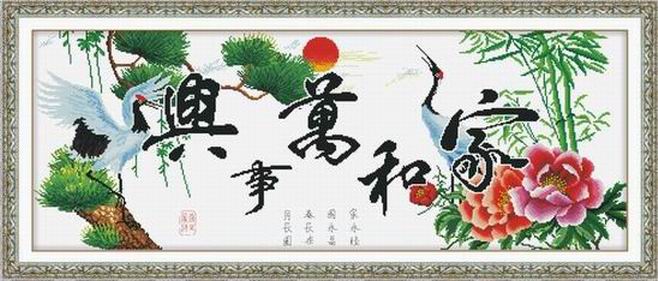 家和萬事興
家永睦
國永昌
春長在
月長圓